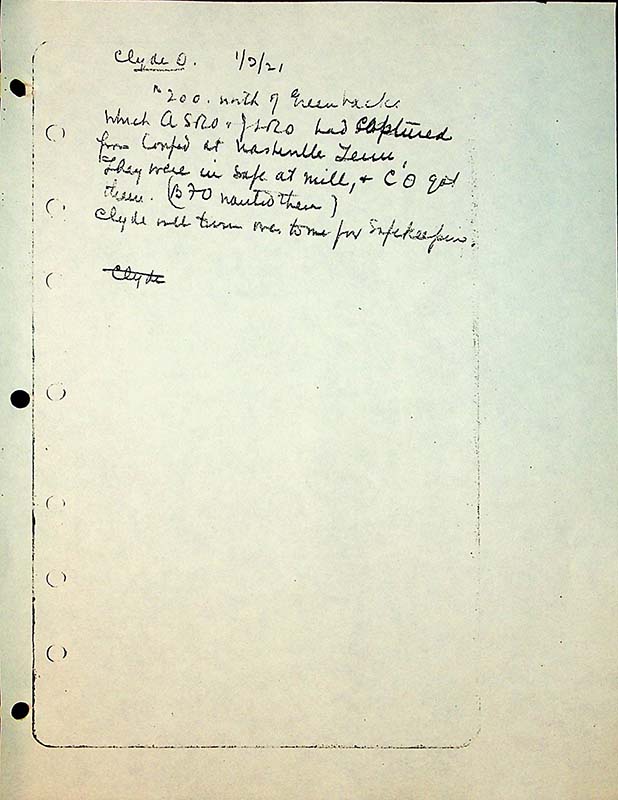 Clyde O. 1/3/21
$200. worth of Greenbacks
which A SRO & JLRO had captured
from Confed at Nashville Tenn,
They were in safe at mill, & C O got
them. (B FO wanted them)
Clyde will turn over to me for safekeeping.
Clyde